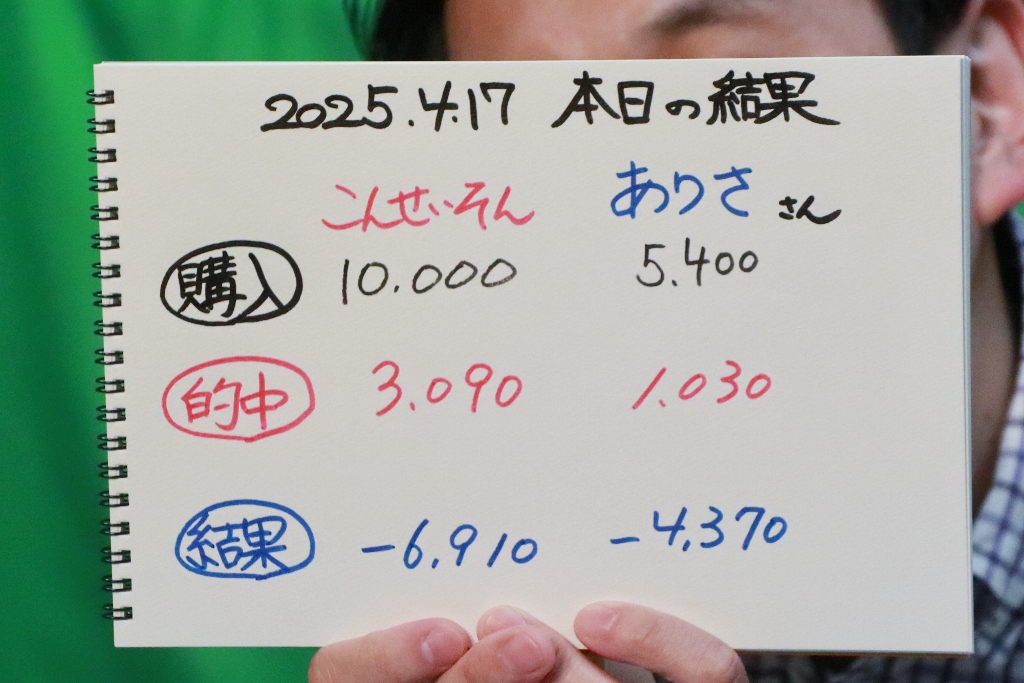 2025.4.17 本日の結果
こんせいそん ありさ さん
購入 10.000 5.400
的中 3.090 1.030
結果 -6,910 -4,370